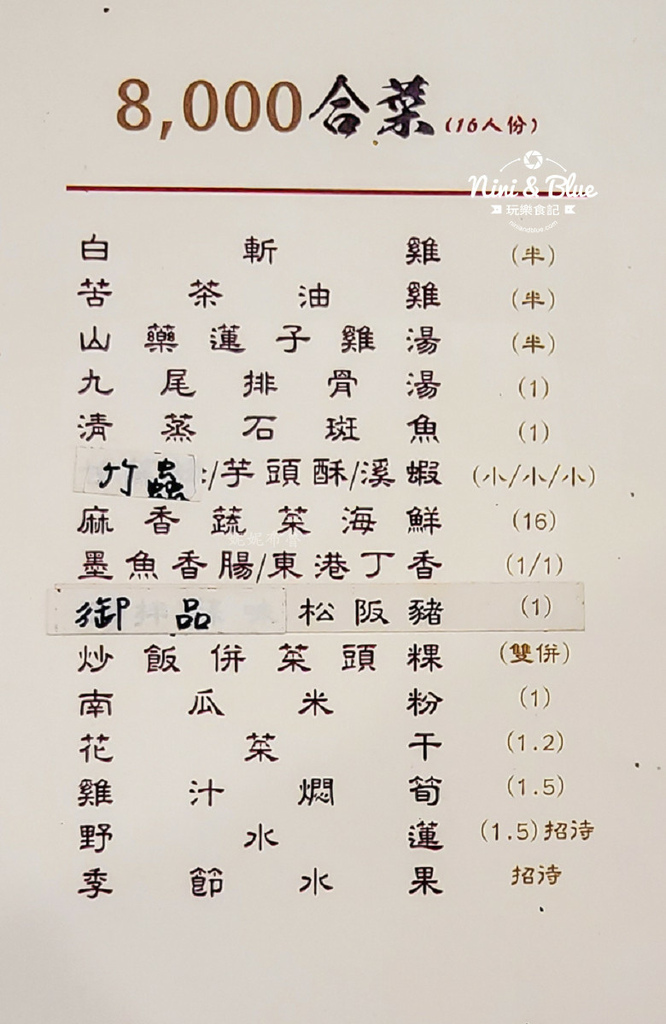 8,000合菜(16人份)
Nini & Blue
玩樂食記
niniandblue.com
白斬雞 (半)
苦茶油雞 (半)
山藥蓮子雞湯 (半)
九尾排骨湯 (1)
清蒸石斑魚 (1)
竹蟲:/芋頭酥/溪蝦 (小/小/小)
麻香蔬菜海鮮 (16)
墨魚香腸/東港丁香 (1/1)
御品松阪豬 (1)
炒飯併菜頭粿 (雙併)
南瓜米粉 (1)
花菜干 (1.2)
雞汁燜筍 (1.5)
野水蓮 (1.5)招待
季節水果 招待